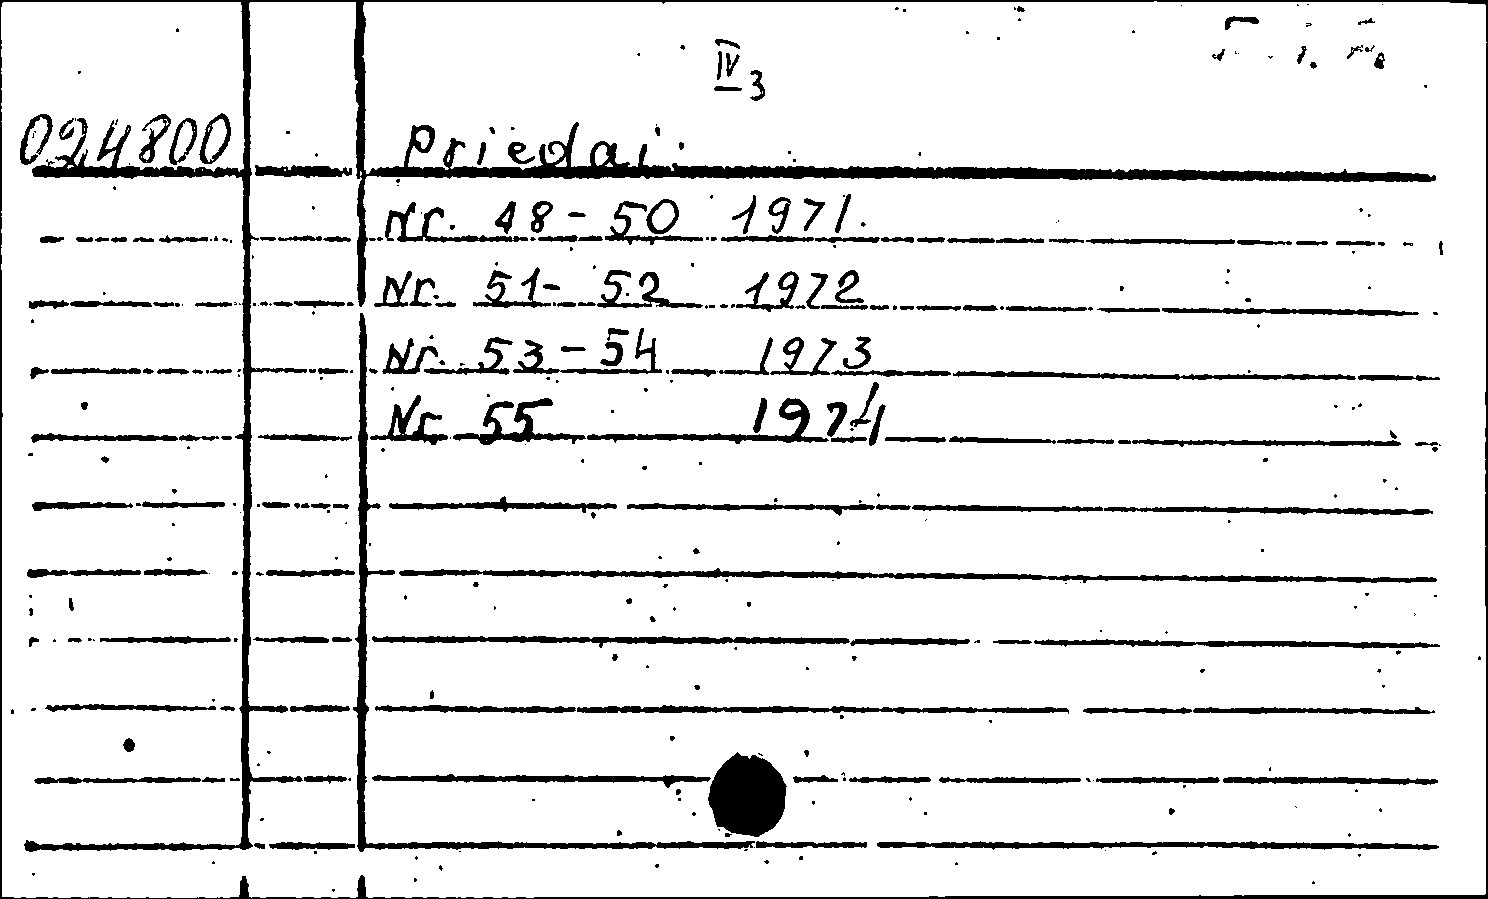 IV3
024800 Priedai:
Nr. 48-50 1971.
Nr. 51-52 1972
Nr. 53-54 1973
Nr 55 1974